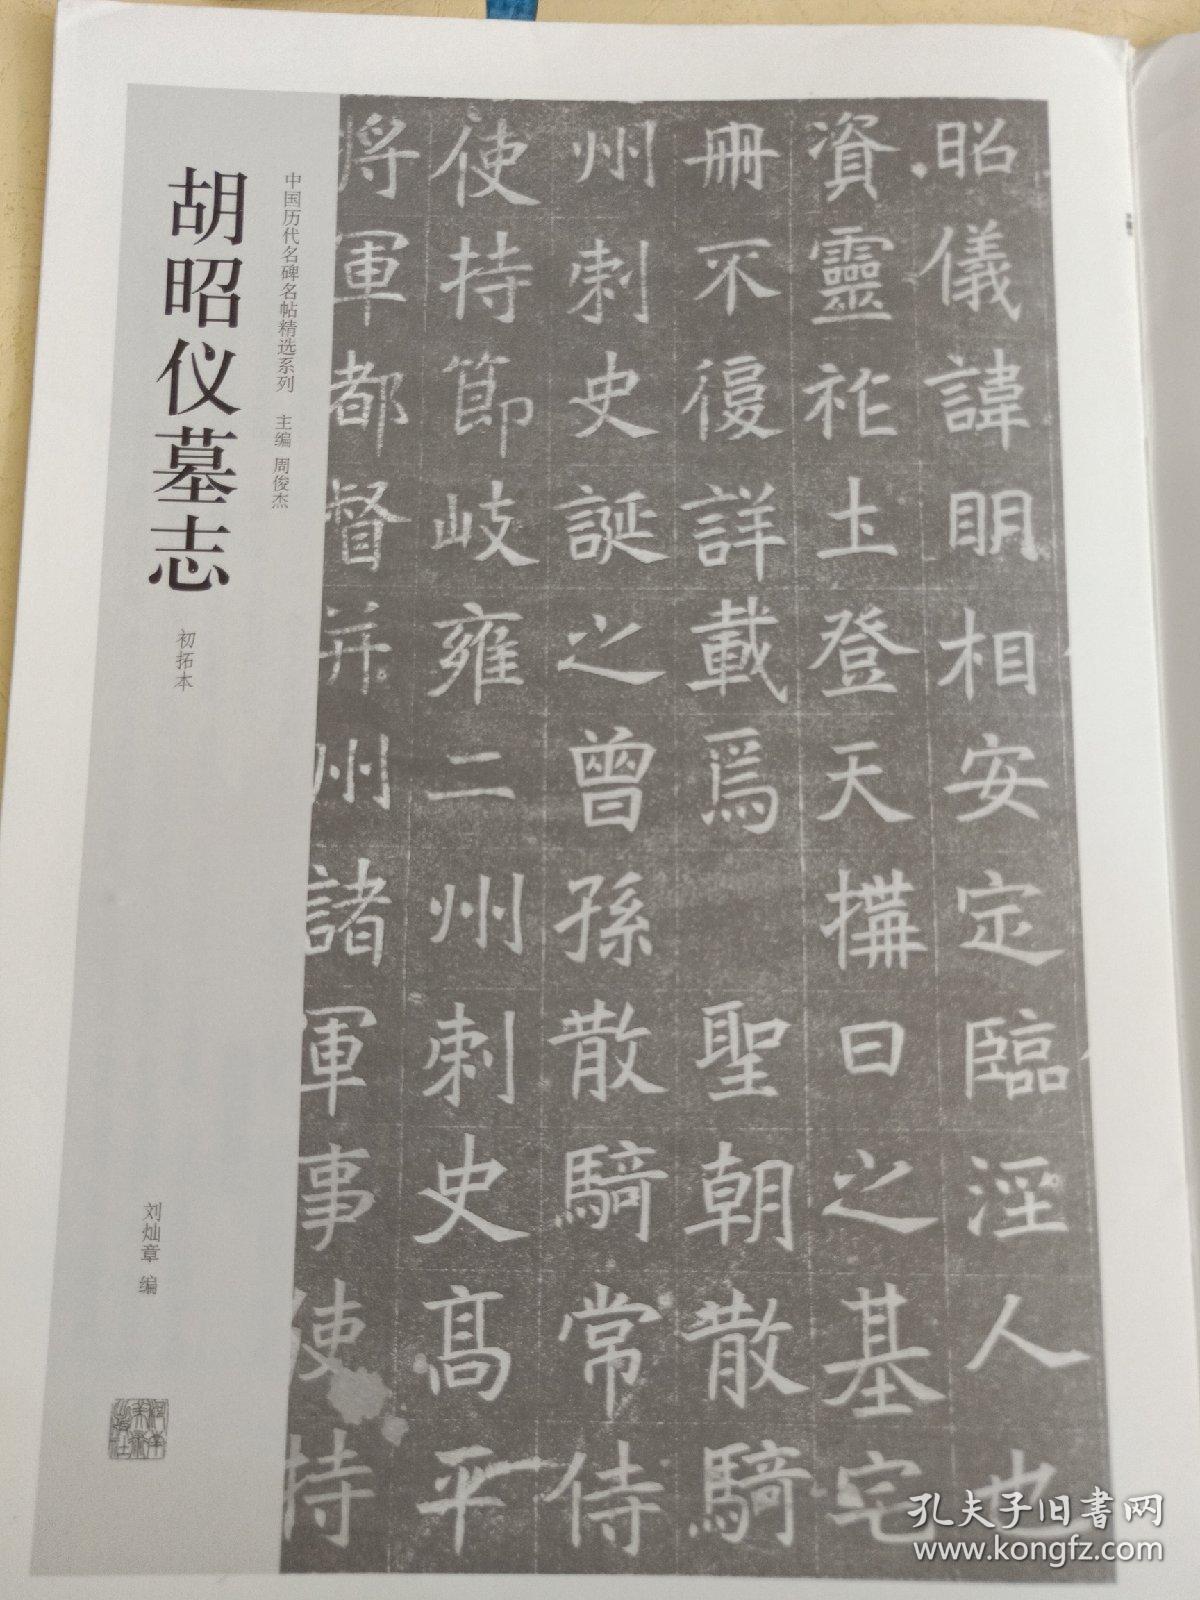 昭儀諱明相安定臨涇人也
資靈祚土登天搆日之基宅
冊不復詳載焉 聖朝散騎
州刺史誕之曾孫散騎常侍
使持節岐雍二州刺史高平
将軍都督并州諸軍事使持
中国历代名碑名帖精选系列 主编 周俊杰
胡昭仪墓志
初拓本
刘灿章 编
孔夫子旧书网
www.kongfz.com